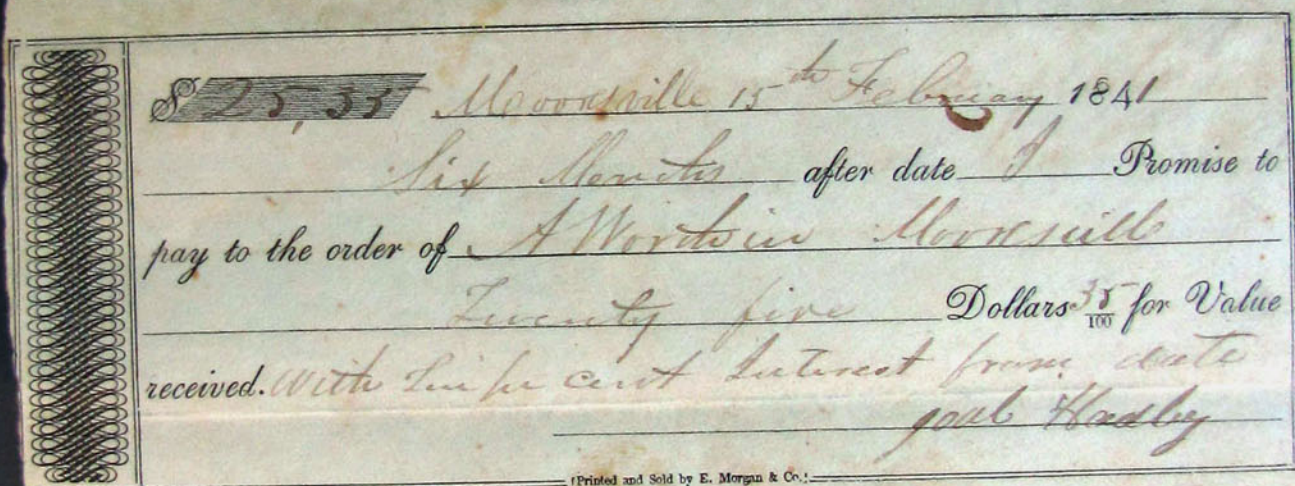 $ 25,35 Moorsville 15th February 1841
Six Months after date I Promise to
pay to the order of A Worth in Moorsville
Twenty five Dollars 35/100 for Value
received. with per cent Interest from date
Joal Hadley
(Printed and Sold by E. Morgan & Co.)